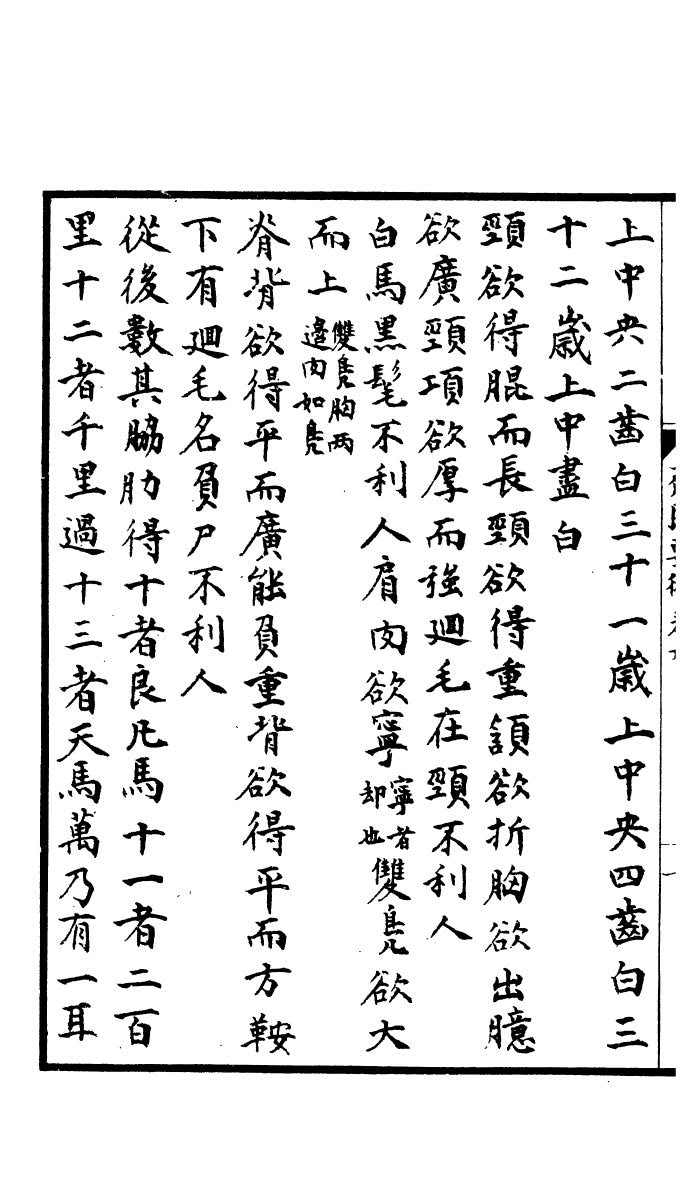 上中央二齒白三十一歲上中央四齒白三
十二歲上中盡白
頸欲得䐊而長頸欲得重頷欲折胸欲出臆
欲廣頸項欲厚而強迴毛在頸不利人
白馬黑髦不利人肩肉欲寧寧者却也雙鳧欲大
而上雙鳧胸兩邊肉如鳧
脊背欲得平而廣能負重背欲得平而方鞍
下有迴毛名負尸不利人
從後數其脇肋得十者良凡馬十一者二百
里十二者千里過十三者天馬萬乃有一耳